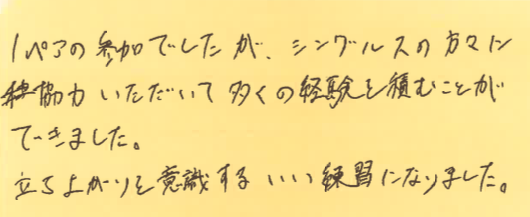 1ペアの参加でしたが、シングルスの方々に
協力いただいて多くの経験を積むことが
できました。
立ち上がりを意識するいい練習になりました。